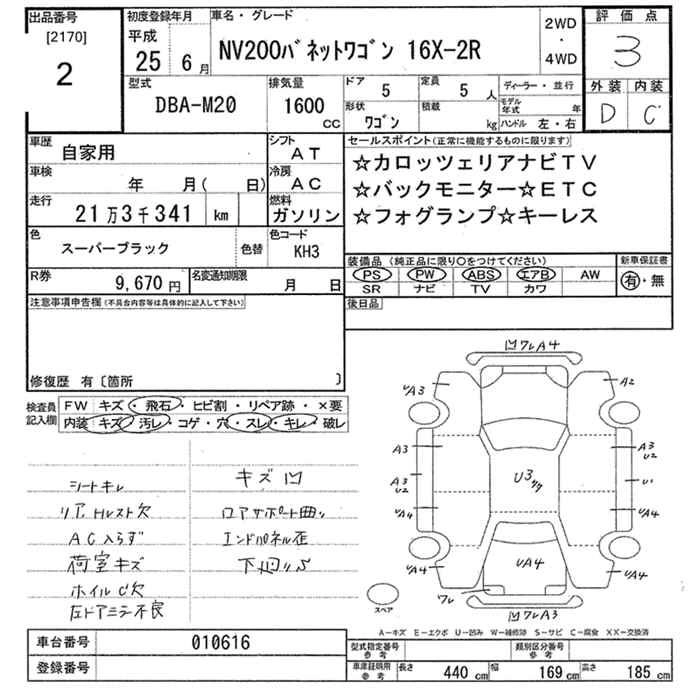 出品番号
[2170]
2
初度登録年月
平成
25 6 月
車名・グレード
NV200バネットワゴン 16X-2R
2WD
・
4WD
評価点
3
外装 内装
D C
型式
DBA-M20
排気量
1600
cc
ドア
5
定員
5 人
形状
ワゴン
積載
kg
ディーラー・並行
モデル年式 年
ハンドル 左・右
車歴
自家用
シフト
AT
車検
年 月( 日)
冷房
AC
走行
21万3千341 km
燃料
ガソリン
色
スーパーブラック
色替
色コード
KH3
R券
9,670 円
名変通知期限
月 日
セールスポイント(正常に機能するものに限ります)
☆カロッツェリアナビTV
☆バックモニター☆ETC
☆フォグランプ☆キーレス
装備品(純正品に限り○をつけてください)
PS PW ABS エアB AW
SR ナビ TV カワ
新車保証書
有・無
後日品
注意事項申告欄(不具合内容等は具体的に記入して下さい)
修復歴 有〔箇所 〕
検査員
記入欄
FW キズ・飛石・ヒビ割・リペア跡・×要
内装 キズ・汚レ・コゲ・穴・スレ・キレ・破レ
シートキレ
リアHレスト欠
AC入らず
荷室キズ
ホイルC欠
左ドアミラー不良
キズ凹
ロアサポート曲り
エンドパネル歪
下廻りS
凹ワレA4
UA3
A2
A3
A3
U2
A3
U2
U1
U3
UA4
UA4
UA4
UA4
UA4
ワレ
凹ワレA3
スペア
A-キズ E-エクボ U-凹み W-補修跡 S-サビ C-腐食 XX-交換済
車台番号
010616
登録番号
型式指定番号
参考
類別区分番号
参考
車庫証明用
参考
長さ 440 cm 幅 169 cm 高さ 185 cm